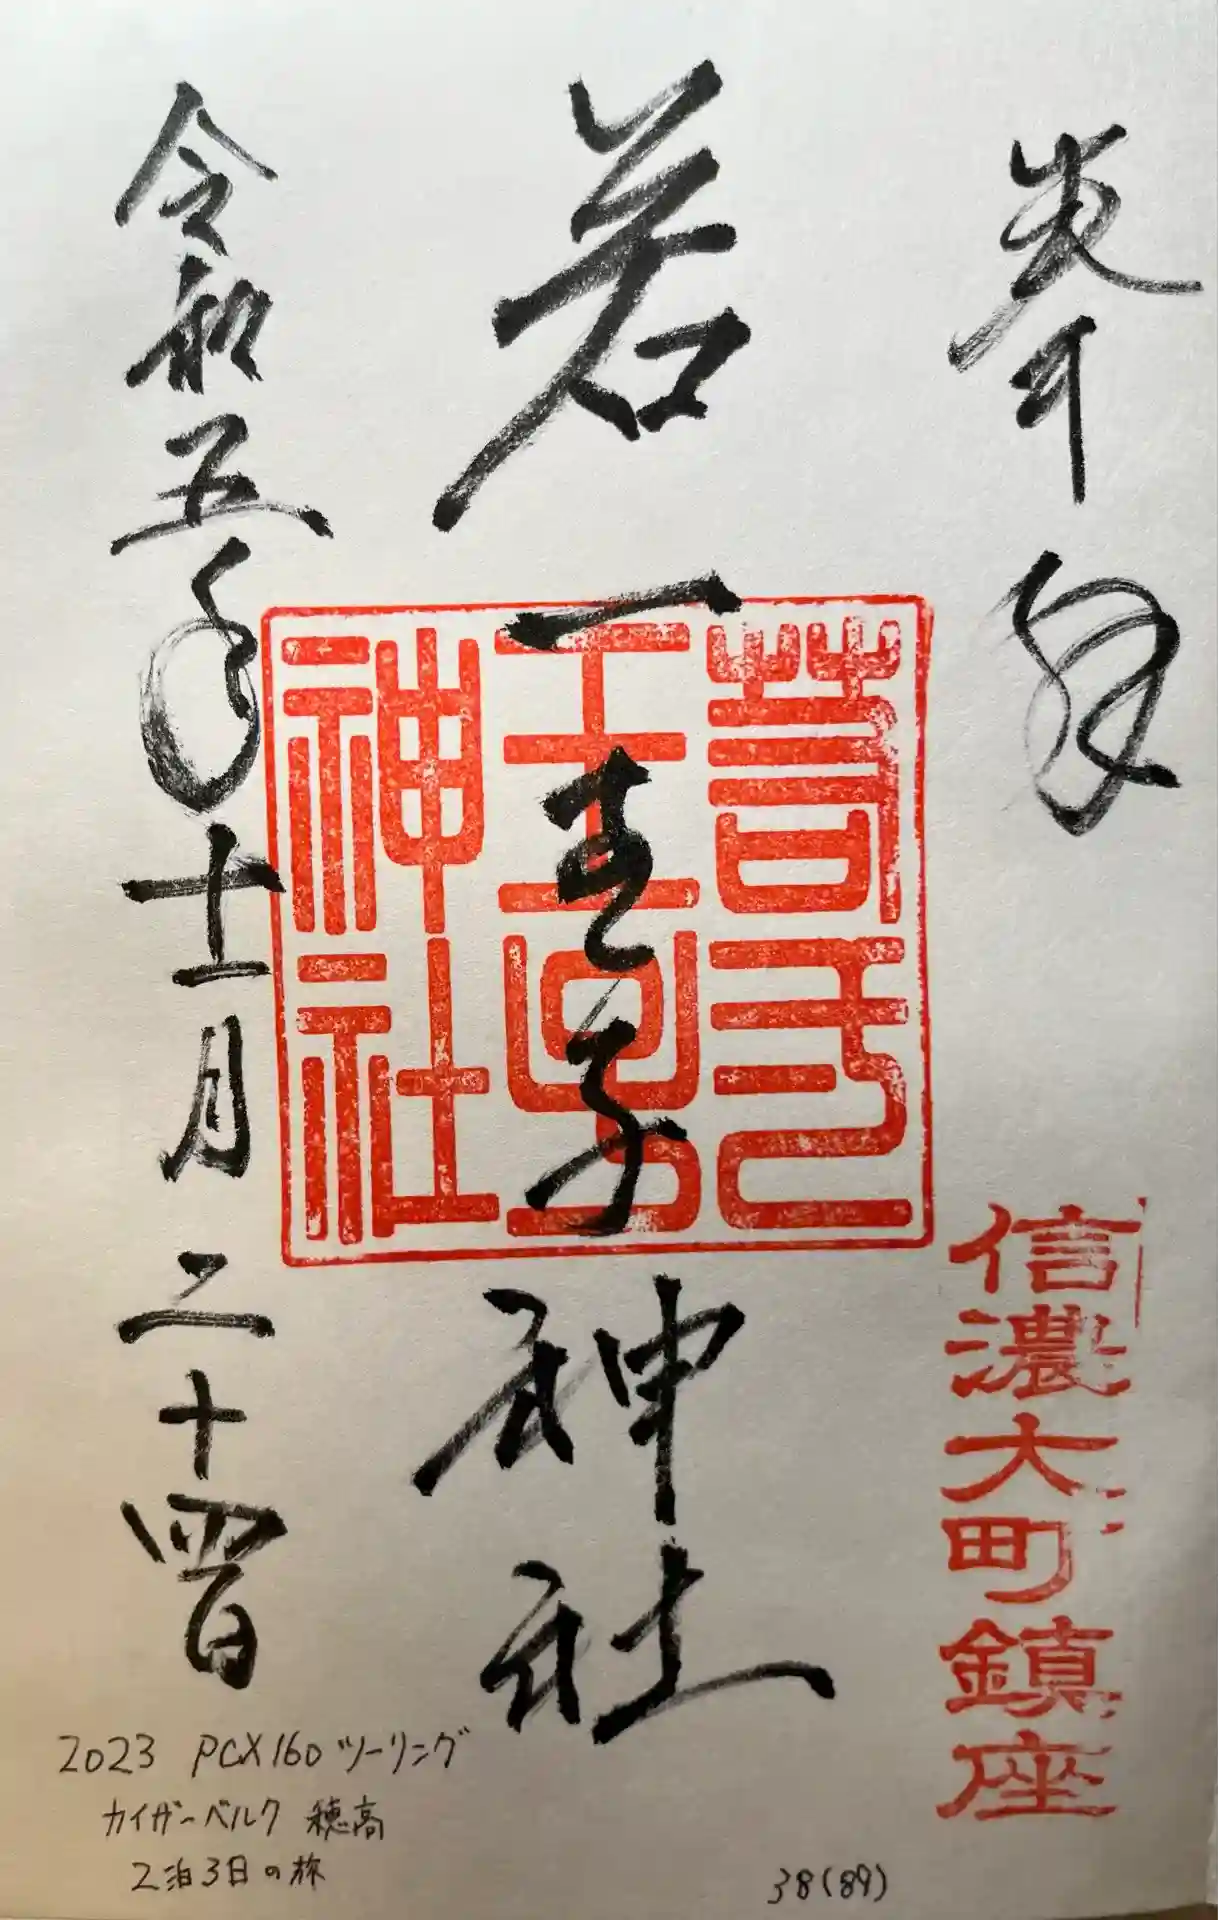 奉拝
信濃大町鎮座
若一王子神社
若一王子神社
令和五年十一月二十四日
2023 PCX160ツーリング
カイザーベルク 穂高
2泊3日の旅
38(89)